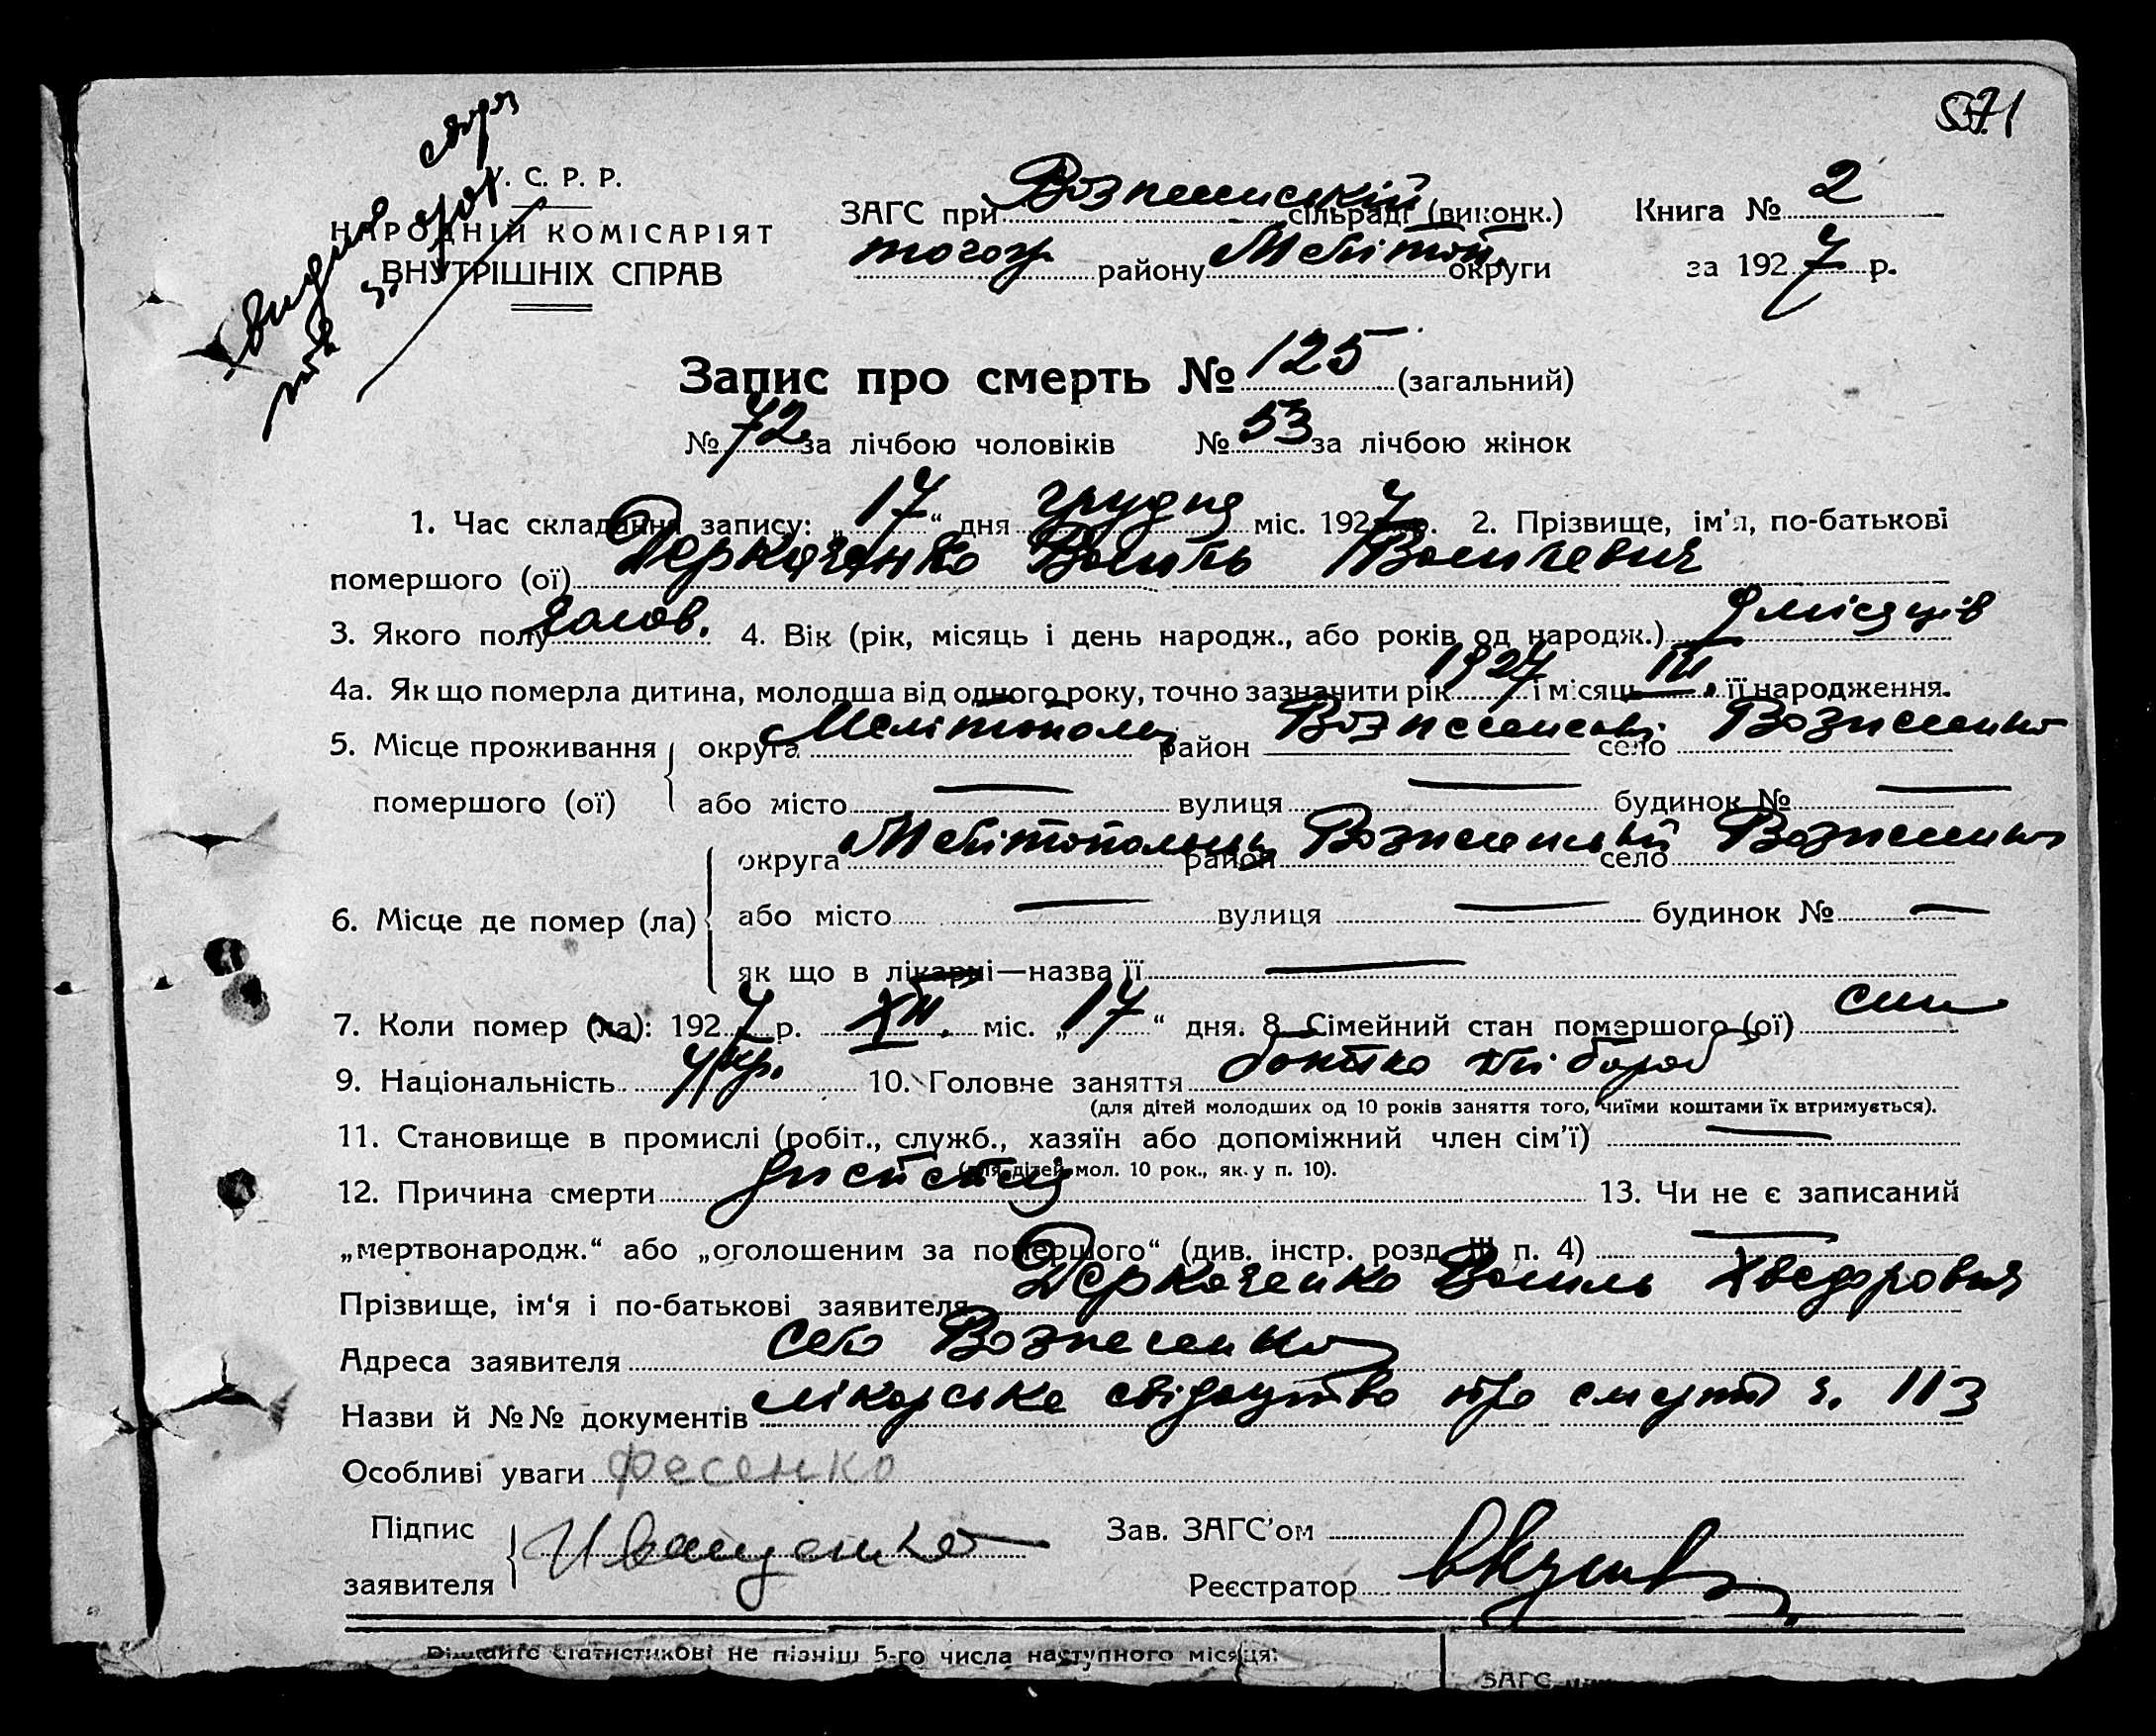 571
У. С. Р. Р.
НАРОДНІЙ КОМІСАРІЯТ
ВНУТРІШНІХ СПРАВ
ЗАГС при Вознесенській сільраді (виконк.)
тогож району Меліт. округи
Книга № 2
за 1927 р.
Запис про смерть № 125 (загальний)
№ 72 за лічбою чоловіків № 53 за лічбою жінок
1. Час складання запису: „17“ дня грудня міс. 1927 р. 2. Прізвище, ім'я, по-батькові
помершого (ої) Деркаченко Василь Васильевич
3. Якого полу чолов. 4. Вік (рік, місяць і день народж., або років од народж.) 9 місяців
4а. Як що померла дитина, молодша від одного року, точно зазначити рік 1927 і місяць III. її народження.
5. Місце проживання округа Мелітополь район Вознесенськ село Вознесенка
помершого (ої) або місто — вулиця — будинок № —
округа Мелітопольщ район Вознесенський село Вознесенка
6. Місце де помер (ла) або місто — вулиця — будинок № —
як що в лікарні—назва її —
7. Коли помер (ла): 1927 р. XII. міс. „17“ дня. 8. Сімейний стан помершого (ої) син
9. Національність Укр. 10. Головне заняття батько хлібороб
(для дітей молодших од 10 років заняття того, чиїми коштами їх втримується).
11. Становище в промислі (робіт., служб., хазяїн або допоміжний член сім'ї) —
(для дітей мол. 10 рок., як у п. 10).
12. Причина смерти 13. Чи не є записаний
„мертвонародж.“ або „оголошеним за померлого“ (див. інстр. розд. III п. 4) —
Прізвище, ім'я і по-батькові заявителя Деркаченко Василь Хведорович
Адреса заявителя село Вознесенка
Назви й №№ документів лікарське свідоцтво про смерть ч. 113
Особливі уваги Фесенко
Підпис заявителя Иващенко
Зав. ЗАГС'ом
Реєстратор
Відсилайте статистикові не пізніш 5-го числа наступного місяця:
ЗАГС